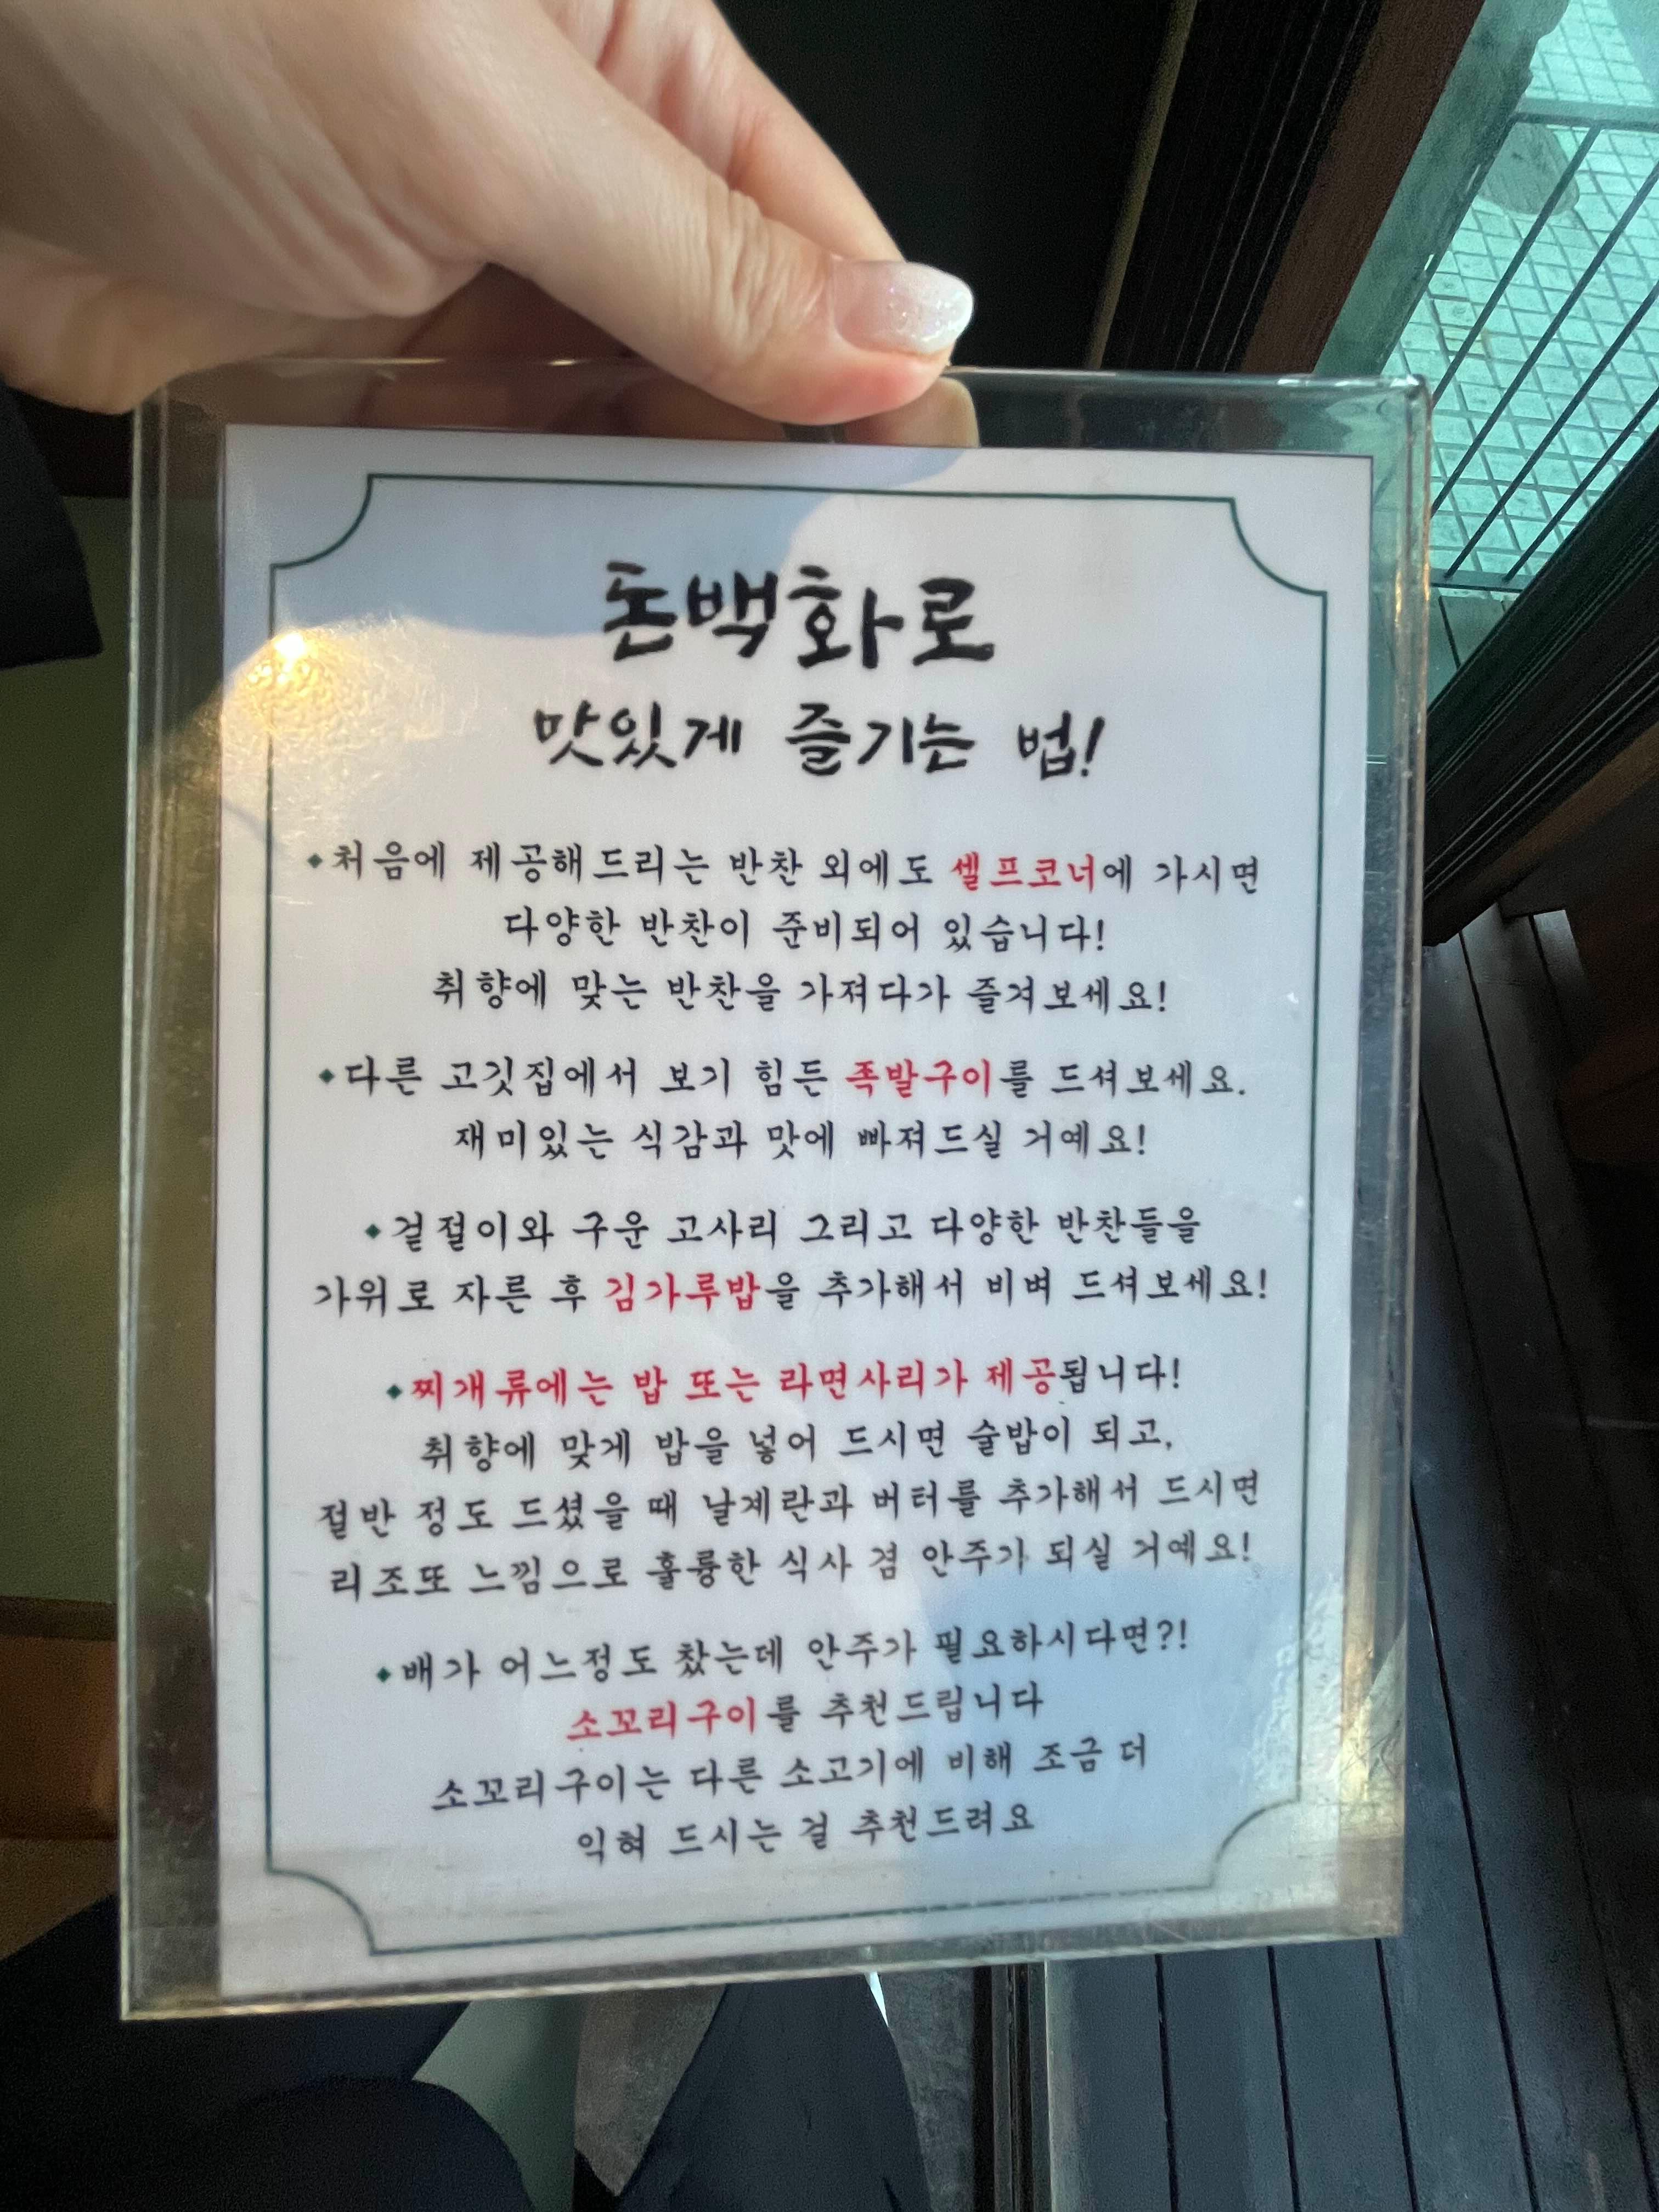 돈백화로
맛있게 즐기는 법!
◆처음에 제공해드리는 반찬 외에도 셀프코너에 가시면
다양한 반찬이 준비되어 있습니다!
취향에 맞는 반찬을 가져다가 즐겨보세요!
◆다른 고깃집에서 보기 힘든 족발구이를 드셔보세요.
재미있는 식감과 맛에 빠져드실 거예요!
◆겉절이와 구운 고사리 그리고 다양한 반찬들을
가위로 자른 후 김가루밥을 추가해서 비벼 드셔보세요!
◆찌개류에는 밥 또는 라면사리가 제공됩니다!
취향에 맞게 밥을 넣어 드시면 술밥이 되고,
절반 정도 드셨을 때 날계란과 버터를 추가해서 드시면
리조또 느낌으로 훌륭한 식사 겸 안주가 되실 거예요!
◆배가 어느정도 찼는데 안주가 필요하시다면?!
소꼬리구이를 추천드립니다
소꼬리구이는 다른 소고기에 비해 조금 더
익혀 드시는 걸 추천드려요